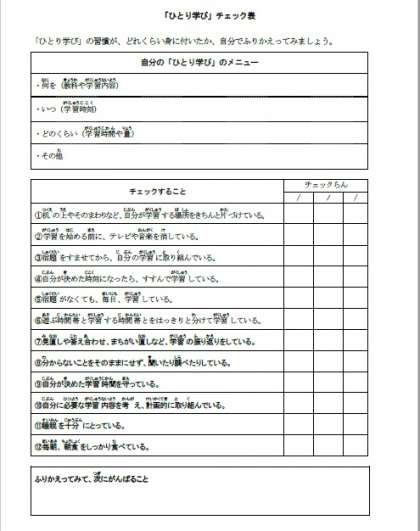 「ひとり学び」チェック表
「ひとり学び」の習慣が、どれくらい身に付いたか、自分でふりかえってみましょう。
自分の「ひとり学び」のメニュー
・何を（教科や学習内容）
・いつ（学習時刻）
・どのくらい（学習時間や量）
・その他
チェックすること
チェックらん
/ / /
①机の上やそのまわりなど、自分が学習する場所をきちんと片づけている。
②学習を始める前に、テレビや音楽を消している。
③宿題をすませてから、自分の学習に取り組んでいる。
④自分が決めた時刻になったら、すすんで学習している。
⑤宿題がなくても、毎日、学習している。
⑥遊ぶ時間帯と学習する時間帯とをはっきりと分けて学習している。
⑦見直しや答え合わせ、まちがい直しなど、学習の振り返りをしている。
⑧分からないことをそのままにせず、聞いたり調べたりしている。
⑨自分が決めた学習時間を守っている。
⑩自分に必要な学習内容を考え、計画的に取り組んでいる。
⑪睡眠を十分にとっている。
⑫毎朝、朝食をしっかり食べている。
ふりかえってみて、次にがんばること